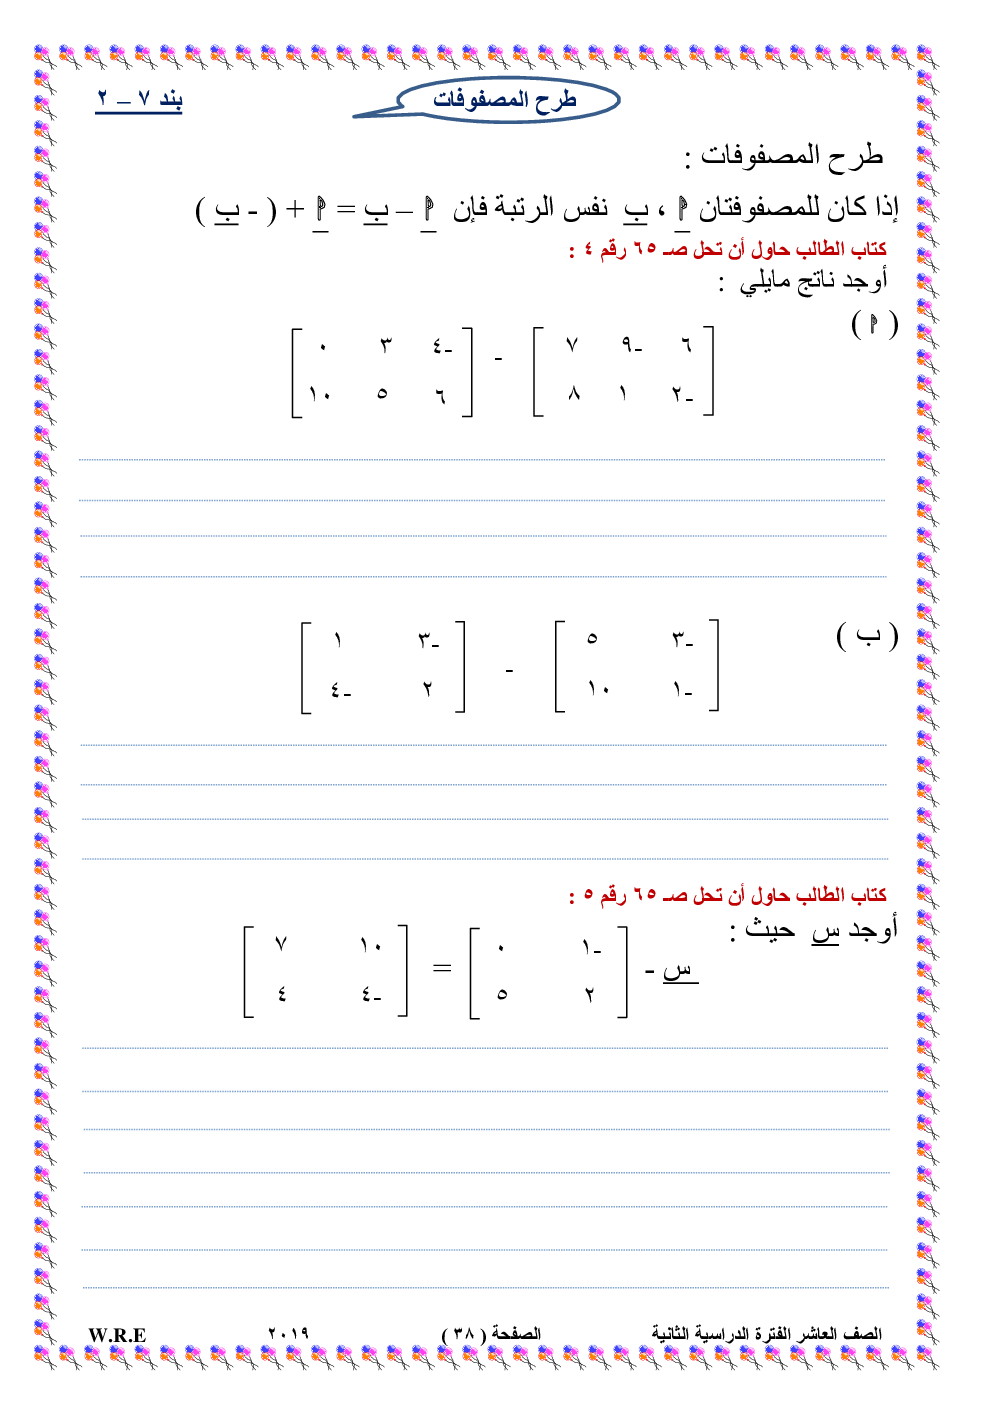 طرح المصفوفات
بند ٧ – ٢
طرح المصفوفات :
إذا كان للمصفوفتان أ ، ب نفس الرتبة فإن أ – ب = أ + ( - ب )
كتاب الطالب حاول أن تحل صـ ٦٥ رقم ٤ :
أوجد ناتج مايلي :
( أ )
٦ -٩ ٧ - -٤ ٣ ٠
-٢ ١ ٨ ٦ ٥ ١٠
( ب )
-٣ ٥ - -٣ ١
-١ ١٠ ٢ -٤
كتاب الطالب حاول أن تحل صـ ٦٥ رقم ٥ :
أوجد س حيث :
س - -١ ٠ = ١٠ ٧
٢ ٥ -٤ ٤
الصف العاشر الفترة الدراسية الثانية الصفحة ( ٣٨ ) ٢٠١٩ W.R.E